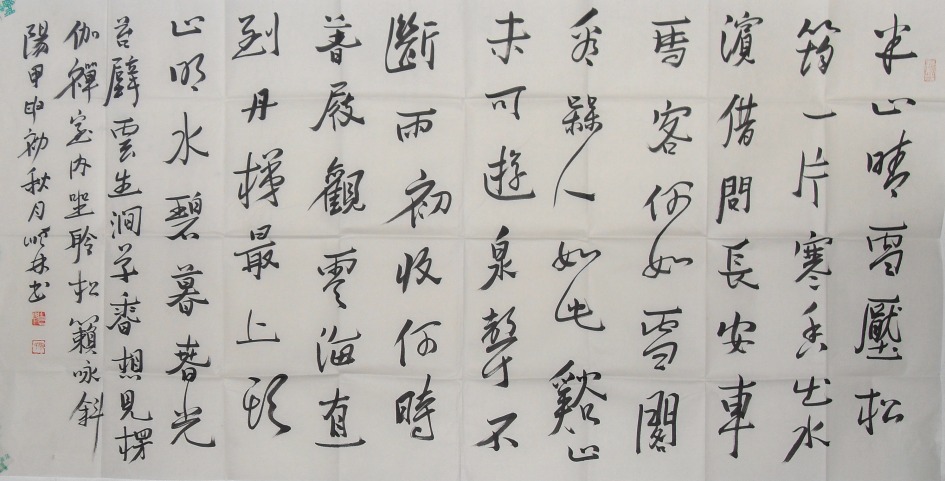 半山晴雪壓松
筠一片寒香出水
濵借問長安車
馬客何如雪閣
看人如此谿山
未可遊泉聲不
斷雨初收何時
著屐觀雲海直
到丹梯最上頭
山明水碧暮春光
苔壁雲生澗草香想見楞
伽禪室內坐聆松籟咏斜
陽甲申初秋月曉林书